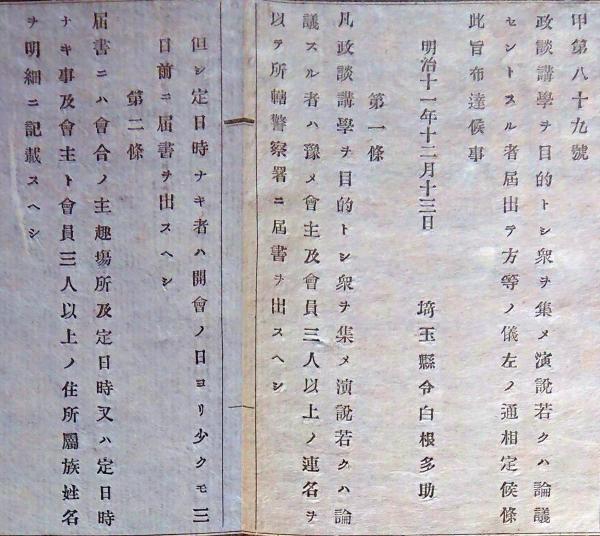 甲第八十九號
政談講學ヲ目的トシ衆ヲ集メ演説若クハ論議
セントスル者屆出テ方等ノ儀左ノ通相定候條
此旨布達候事
明治十一年十二月十三日　埼玉縣令白根多助
第一條
凡政談講學ヲ目的トシ衆ヲ集メ演説若クハ論
議スル者ハ豫メ會主及會員三人以上ノ連名ヲ
以テ所轄警察署ニ屆書ヲ出スヘシ
但シ定日時ナキ者ハ開會ノ日ヨリ少クモ三
日前ニ屆書ヲ出スヘシ
第二條
屆書ニハ會合ノ主趣塲所及定日時又ハ定日時
ナキ事及會主ト會員三人以上ノ住所屬族姓名
ヲ明細ニ記載スヘシ